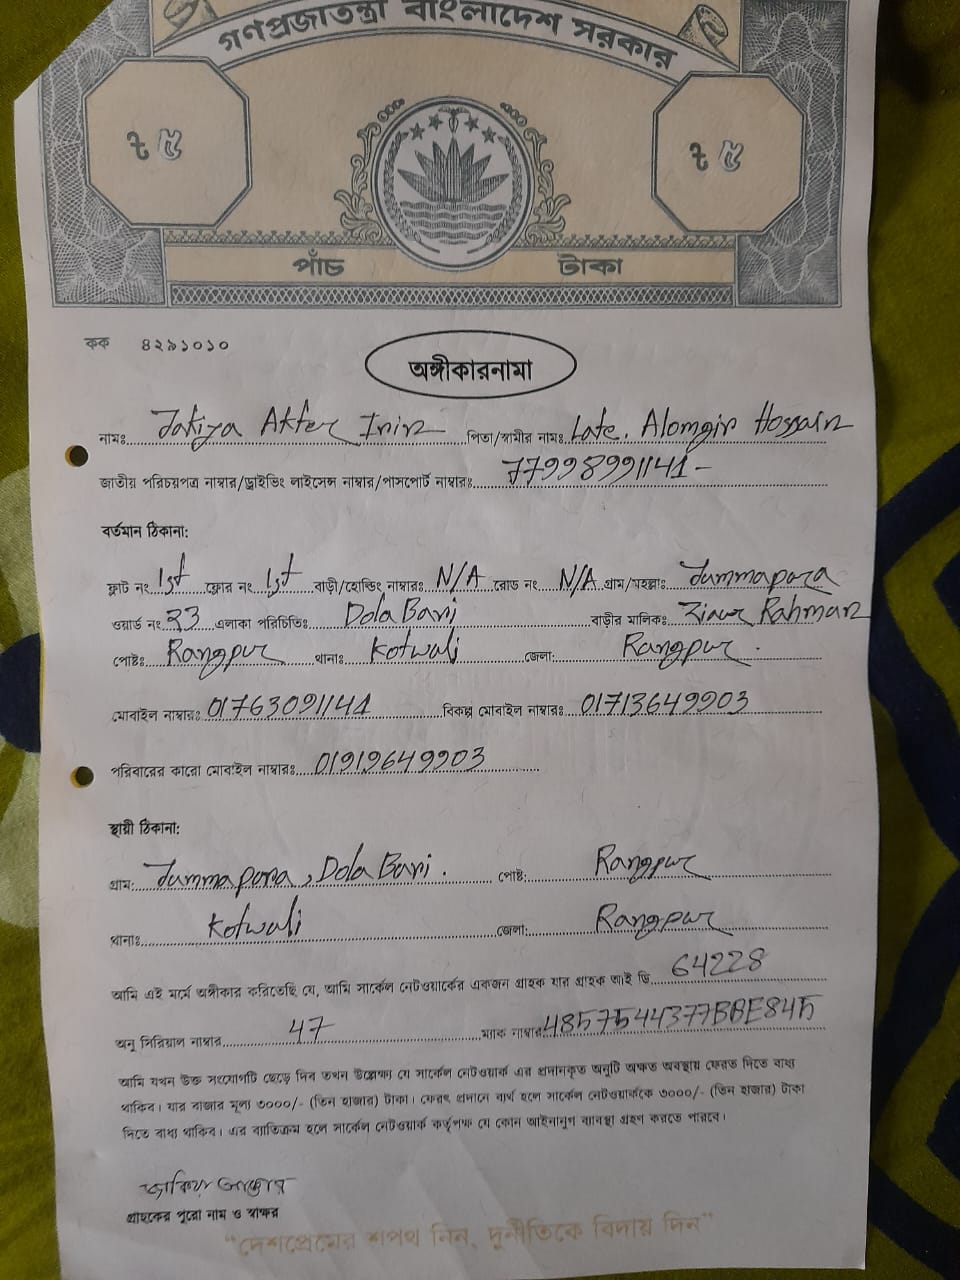 গণপ্রজাতন্ত্রী বাংলাদেশ সরকার
ট ৫ ট ৫
পাঁচ টাকা
কক ৪২৯১০১০
অঙ্গীকারনামা
নামঃ Jakiya Akter Irin পিতা/স্বামীর নামঃ Late. Alomgir Hossain
জাতীয় পরিচয়পত্র নাম্বার/ড্রাইভিং লাইসেন্স নাম্বার/পাসপোর্ট নাম্বারঃ 77998991141-
বর্তমান ঠিকানা:
ফ্লাট নং 1st ফ্লোর নং 1st বাড়ী/হোল্ডিং নাম্বারঃ N/A রোড নং N/A গ্রাম/মহল্লাঃ Jummapara
ওয়ার্ড নং 23 এলাকা পরিচিতিঃ Dola Bari বাড়ীর মালিকঃ Ziaur Rahman
পোষ্টঃ Rangpur থানাঃ Kotwali জেলা: Rangpur.
মোবাইল নাম্বারঃ 01763091141 বিকল্প মোবাইল নাম্বারঃ 01713649903
পরিবারের কারো মোবাইল নাম্বারঃ 01919649903
স্থায়ী ঠিকানা:
গ্রাম: Jummapara, Dola Bari. পোষ্ট: Rangpur
থানাঃ Kotwali জেলা: Rangpur
আমি এই মর্মে অঙ্গীকার করিতেছি যে, আমি সার্কেল নেটওয়ার্কের একজন গ্রাহক যার গ্রাহক আই ডি 64228
অনু সিরিয়াল নাম্বার 47 ম্যাক নাম্বার 4857544377BBE845
আমি যখন উক্ত সংযোগটি ছেড়ে দিব তখন উল্লেখ্য যে সার্কেল নেটওয়ার্ক এর প্রদানকৃত অনুটি অক্ষত অবস্থায় ফেরত দিতে বাধ্য
থাকিব। যার বাজার মূল্য ৩০০০/- (তিন হাজার) টাকা। ফেরৎ প্রদানে ব্যর্থ হলে সার্কেল নেটওয়ার্ককে ৩০০০/- (তিন হাজার) টাকা
দিতে বাধ্য থাকিব। এর ব্যতিক্রম হলে সার্কেল নেটওয়ার্ক কর্তৃপক্ষ যে কোন আইনানুগ ব্যবস্থা গ্রহণ করতে পারবে।
জাকিয়া আক্তার
গ্রাহকের পুরো নাম ও স্বাক্ষর
“দেশপ্রেমের শপথ নিন, দুর্নীতিকে বিদায় দিন”